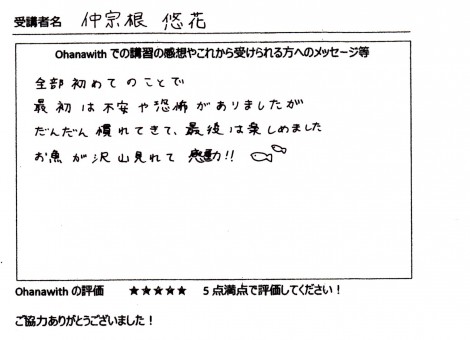 受講者名 仲宗根 悠花
Ohanawith での講習の感想やこれから受けられる方へのメッセージ等
全部初めてのことで
最初は不安や恐怖がありましたが
だんだん慣れてきて、最後は楽しめました
お魚が沢山見れて感動!!
Ohanawith の評価 ★★★★★ 5点満点で評価してください!
ご協力ありがとうございました!